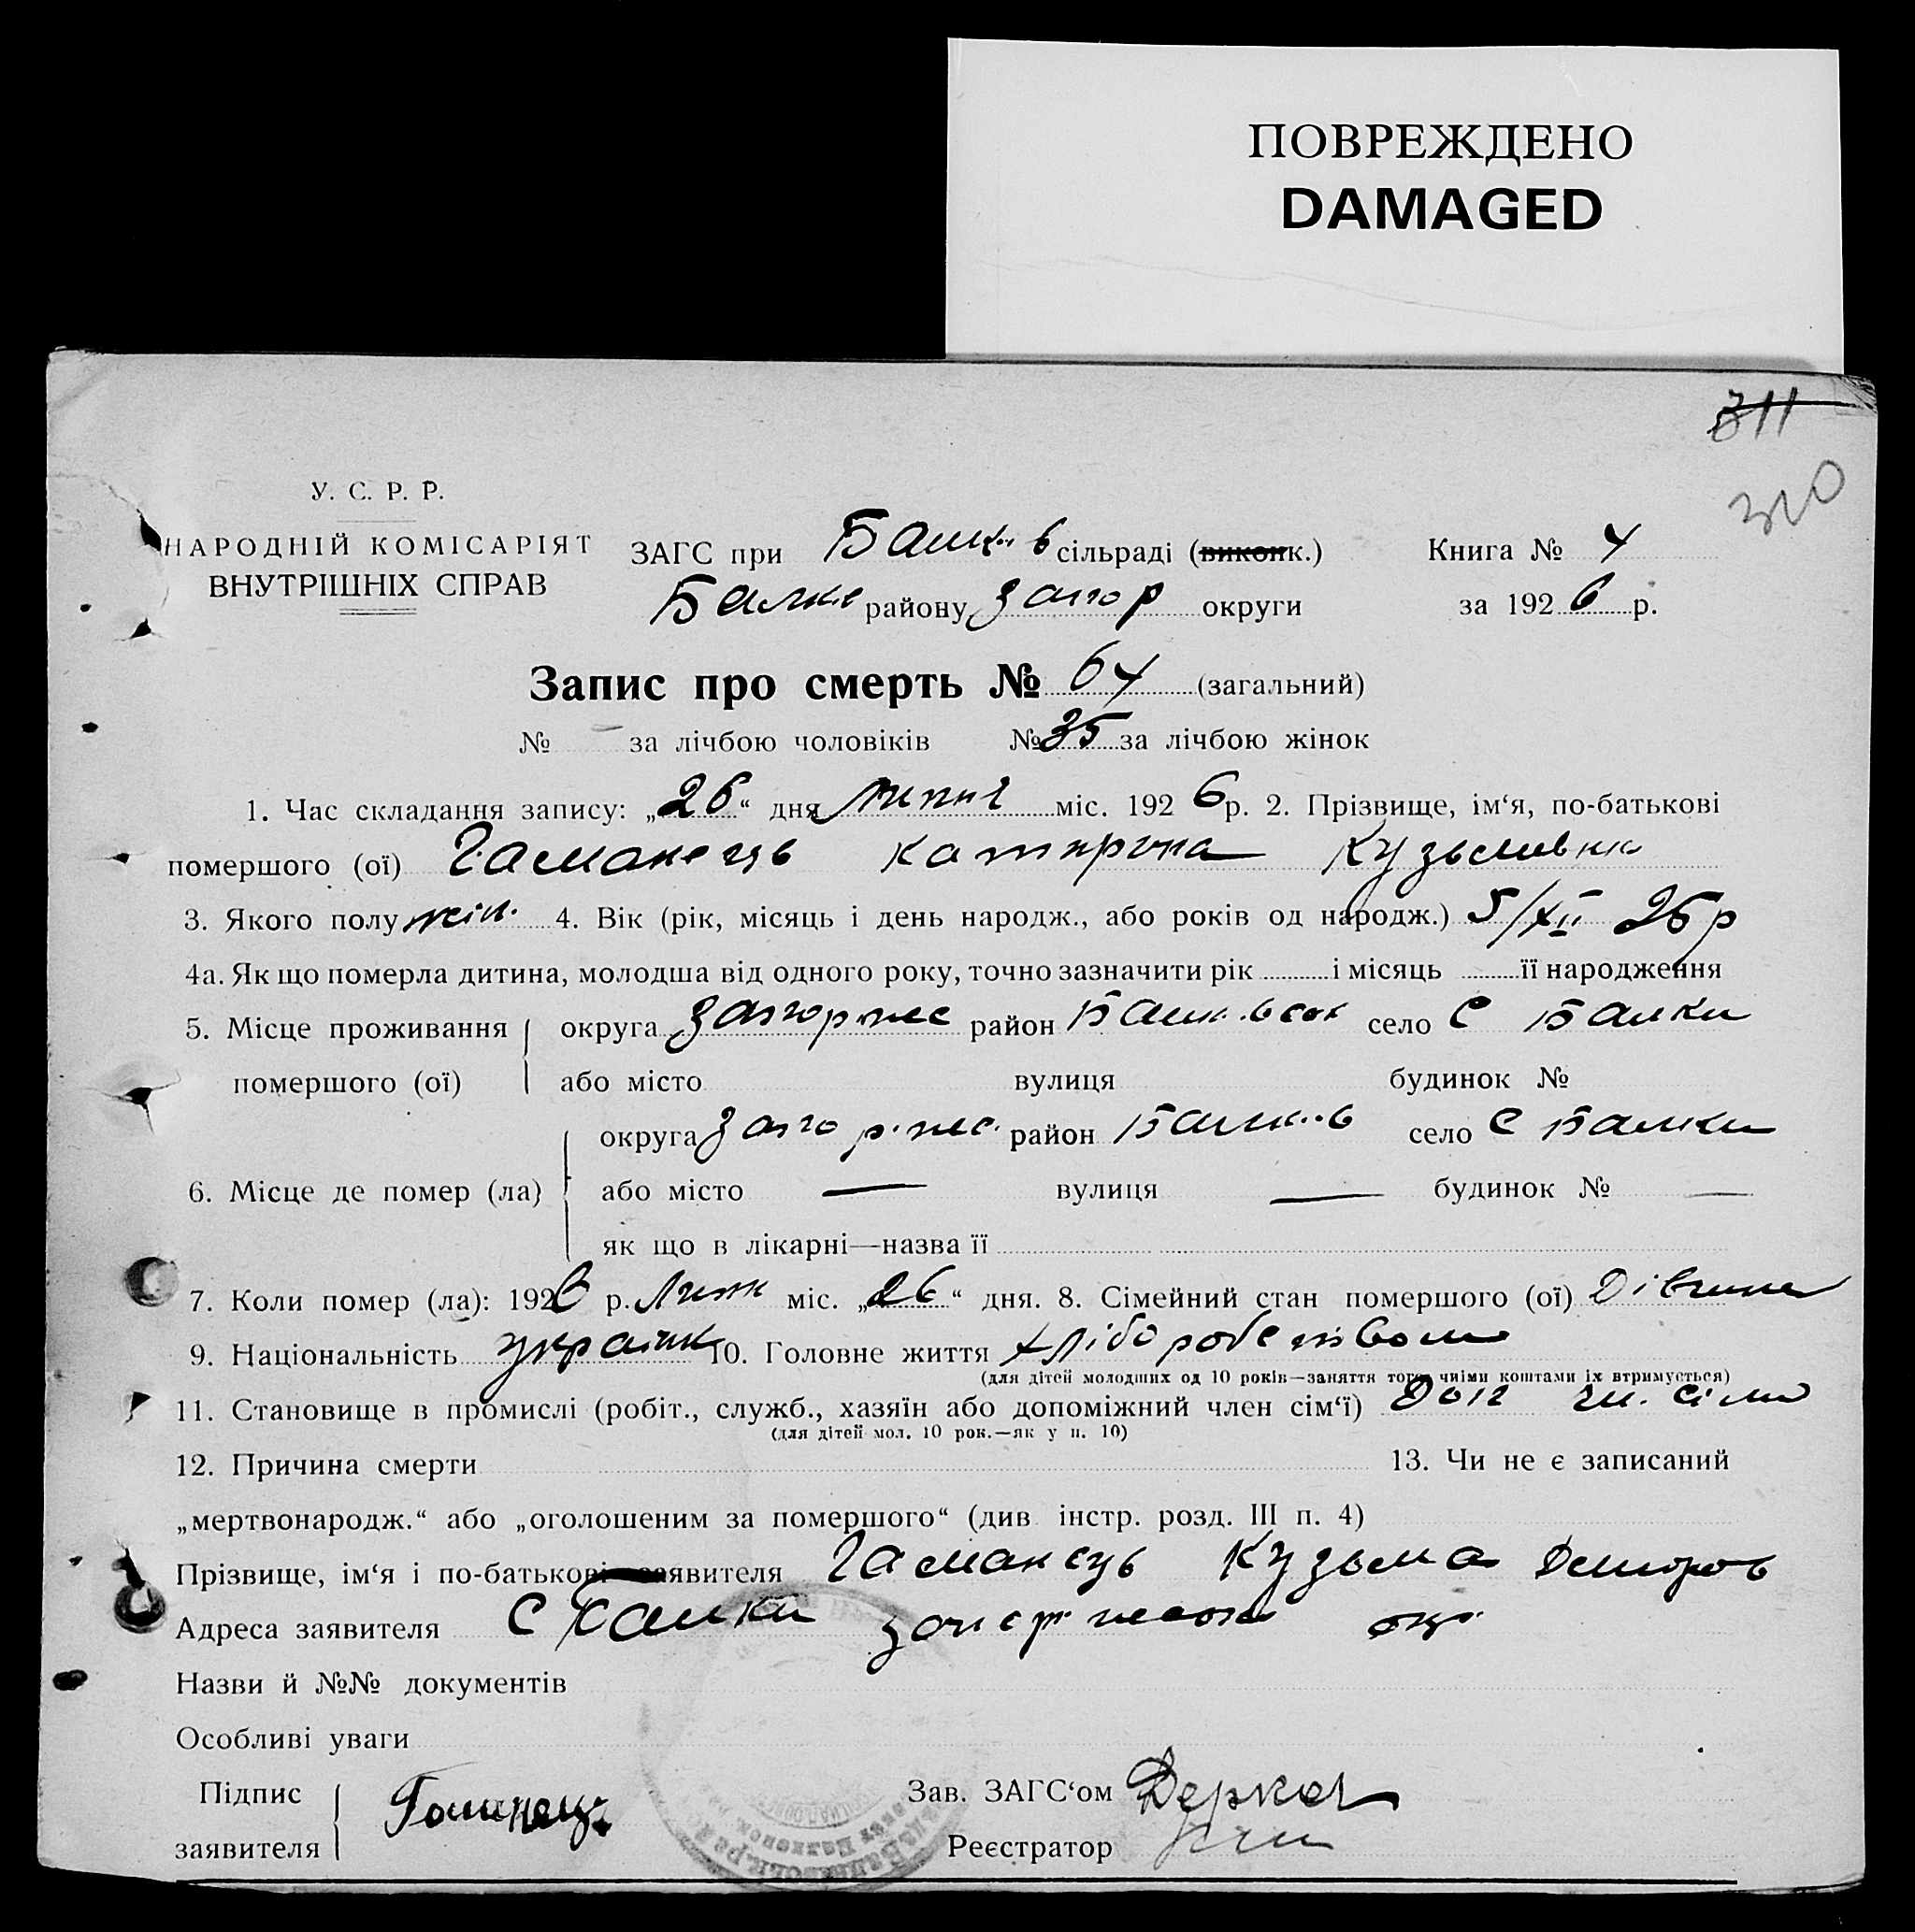 ПОВРЕЖДЕНО
DAMAGED
311
310
У. С. Р. Р.
НАРОДНІЙ КОМІСАРІЯТ
ВНУТРІШНІХ СПРАВ
ЗАГС при Балків сільраді (виконк.) Книга № 4
Балк району Запор округи за 1926 р.
Запис про смерть № 64 (загальний)
№ – за лічбою чоловіків № 35 за лічбою жінок
1. Час складання запису: „26“ дня липня міс. 1926 р. 2. Прізвище, ім‘я, по-батькові
помершого (ої) Гаманець Катерина Кузьмівна
3. Якого полу жін. 4. Вік (рік, місяць і день народж., або років од народж.) 5/XII 25 р
4а. Як що померла дитина, молодша від одного року, точно зазначити рік і місяць її народження
5. Місце проживання округа район село с Балки
помершого (ої) або місто вулиця будинок №
округа район Балків село с Балки
6. Місце де помер (ла) або місто — вулиця — будинок № —
як що в лікарні—назва її
7. Коли помер (ла): 1926 р. Липн міс. „26“ дня. 8. Сімейний стан помершого (ої) Дівчина
9. Національність україн 10. Головне життя хліборобством
(для дітей молодших од 10 років—заняття того, чиїми коштами їх втримується)
11. Становище в промислі (робіт., служб., хазяїн або допоміжний член сім‘ї) Доп чл. сім
(для дітей мол. 10 рок.—як у п. 10)
12. Причина смерти 13. Чи не є записаний
„мертвонародж.“ або „оголошеним за помершого“ (див інстр. розд. III п. 4)
Прізвище, ім‘я і по-батькові заявителя Гаманець Кузьма
Адреса заявителя с Балки окр.
Назви й №№ документів
Особливі уваги
Підпис
заявителя Гаманець
Зав. ЗАГС‘ом Деркач
Реєстратор